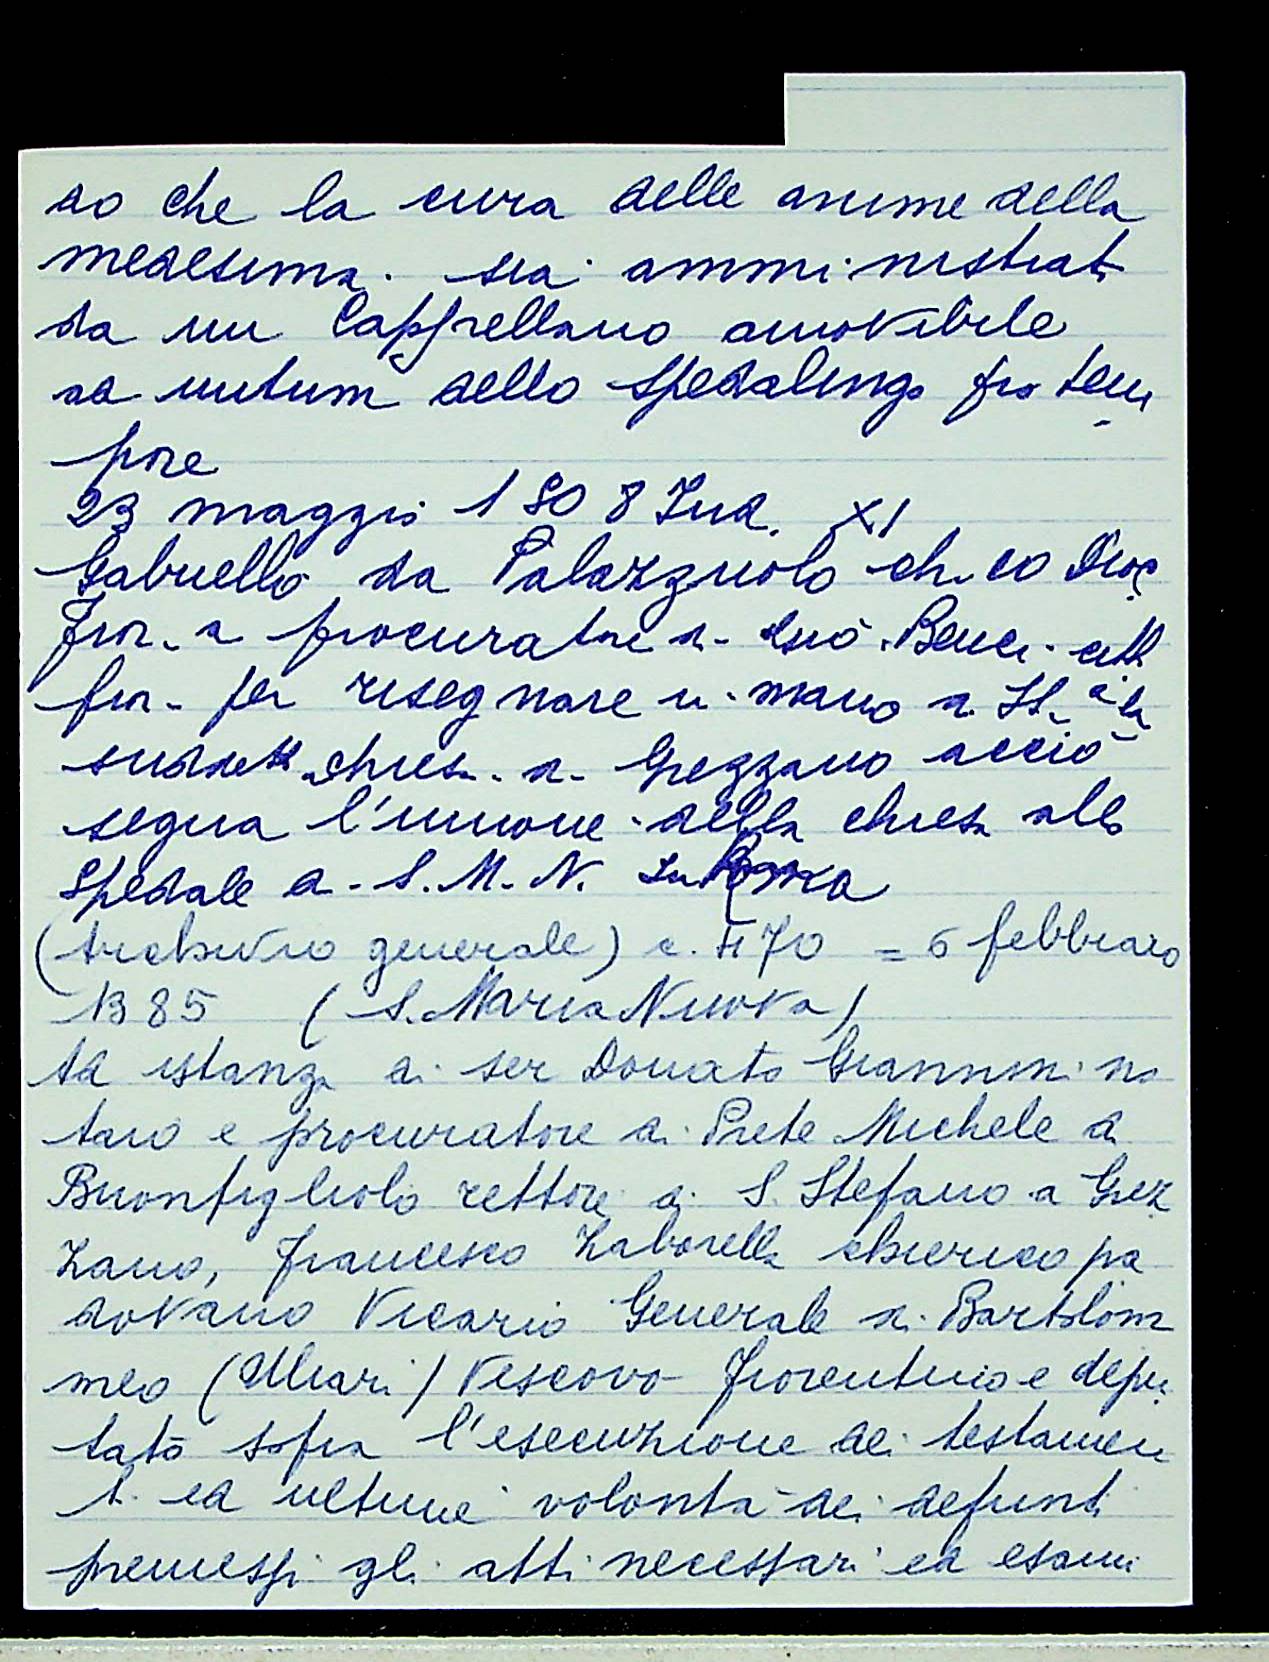 do che la cura delle anime della
medesima. sia amministrat
da un Cappellano amovibile
ad nutum dello Spedalingo pro tem
pore
23 maggio 1808 Ind. XI
Gabriello da Palazzuolo
fior. a procuratore Benci. citt
fior. per risegnare mano la
suddett chies. Grezzano acciò
segua l'unione della chiesa allo
Spedale d. S. M. N. In Roma
(Archivio generale) c. 470 = 6 febbraio
1385 (S. Maria Nuova)
Ad istanza di ser Donato Giannini no
taro e procuratore di Prete Michele d
Buonfigliolo rettore di S. Stefano a Grez
zano, Francesco Zaborella chierico pa
dovano Vicario Generale di Bartolom
meo (Uliari) Vescovo Fiorentino e depu
tato sopra l'esecuzione dei testamen
ti ed ultime volontà dei defunti
premessi gli atti necessari ed esami